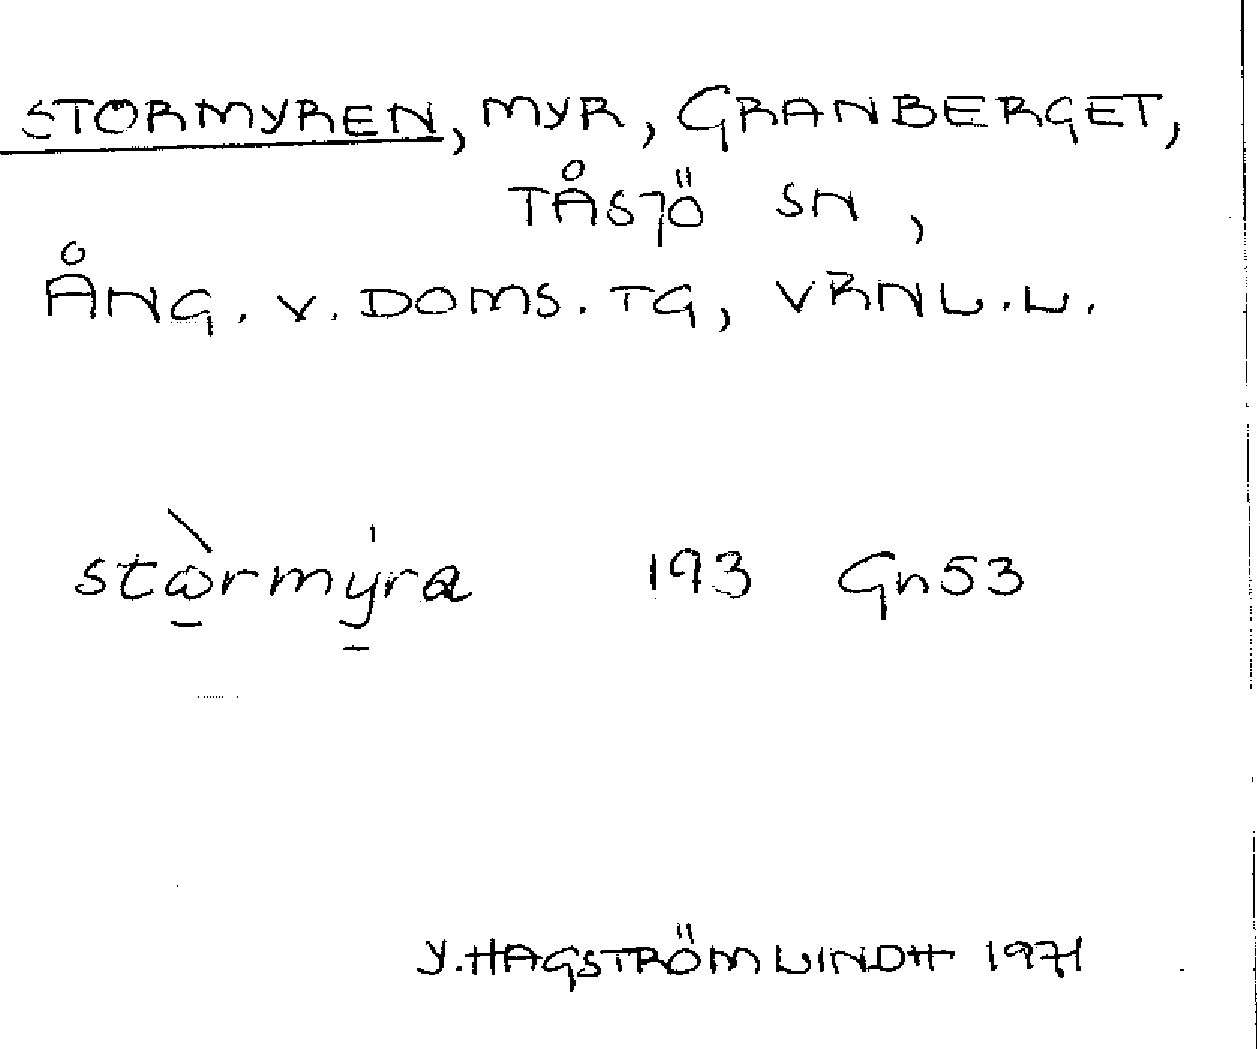 STORMYREN, MYR, GRANBERGET,
TÅSJÖ SN,
ÅNG. V. DOMS. TG, VRNL.L.
stɷ̀rmýra 193 Gn53
Y. HAGSTRÖM LINDH 1971